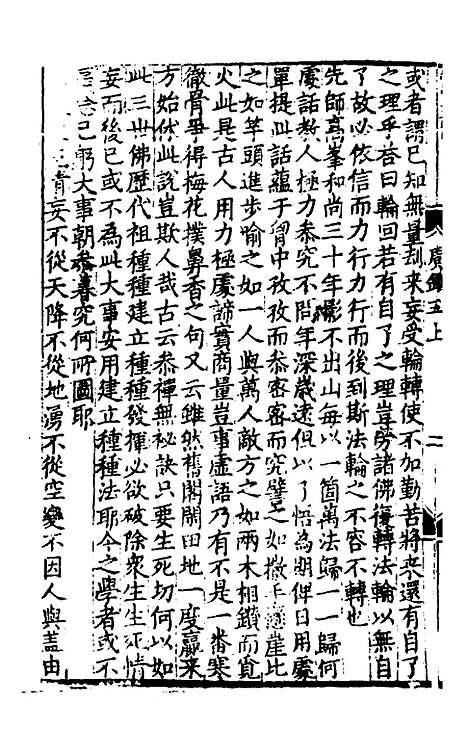 或者謂已知無量刼來妄受輪轉使不加勤苦將來還有自了
之理乎荅曰輪回若有自了之理豈勞諸佛復轉法輪以無自
了故必依信而力行力行而後到斯法輪之不容不轉也
先師高峯和尚三十年影不出山每以一箇萬法歸一一歸何
處話教人極力叅究不問年深歲遠但以了悟為期俾日用處
單提此話蘊于胷中孜孜而叅密密而究譬之如撒手懸崖比
之如竿頭進步喻之如一人與萬人敵方之如兩木相鑽而覔
火此是古人用力極處諦實商量豈事虛語乃有不是一番寒
徹骨爭得梅花撲鼻香之句又云雖然舊閣閑田地一度贏来
方始休此說豈欺人哉古云叅禪無秘訣只要生死切何以如
此三世佛歷代祖種種建立種種發揮必欲破除衆生生死情
妄而後已或不為此大事安用建立種種法耶今之學者或不
己躬大事朝叅暮究何所圖耶
妄不從天降不從地湧不從空變不因人與盖由
廣錄五上
二